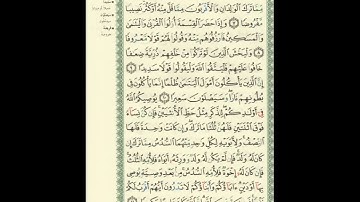 مِّمَّا تَرَكَ الْوَالِدَانِ وَالْأَقْرَبُونَ مِمَّا قَلَّ مِنْهُ أَوْ كَثُرَ نَصِيبًا
مَّفْرُوضًا ٧ وَإِذَا حَضَرَ الْقِسْمَةَ أُولُوا الْقُرْبَىٰ وَالْيَتَامَىٰ
وَالْمَسَاكِينُ فَارْزُقُوهُم مِّنْهُ وَقُولُوا لَهُمْ قَوْلًا مَّعْرُوفًا
٨ وَلْيَخْشَ الَّذِينَ لَوْ تَرَكُوا مِنْ خَلْفِهِمْ ذُرِّيَّةً ضِعَافًا
خَافُوا عَلَيْهِمْ فَلْيَتَّقُوا اللَّهَ وَلْيَقُولُوا قَوْلًا سَدِيدًا ٩
إِنَّ الَّذِينَ يَأْكُلُونَ أَمْوَالَ الْيَتَامَىٰ ظُلْمًا إِنَّمَا يَأْكُلُونَ فِي
بُطُونِهِمْ نَارًا وَسَيَصْلَوْنَ سَعِيرًا ١٠ يُوصِيكُمُ اللَّهُ
فِي أَوْلَادِكُمْ لِلذَّكَرِ مِثْلُ حَظِّ الْأُنثَيَيْنِ فَإِن كُنَّ نِسَاءً
فَوْقَ اثْنَتَيْنِ فَلَهُنَّ ثُلُثَا مَا تَرَكَ وَإِن كَانَتْ وَاحِدَةً فَلَهَا
النِّصْفُ وَلِأَبَوَيْهِ لِكُلِّ وَاحِدٍ مِّنْهُمَا السُّدُسُ مِمَّا تَرَكَ إِن
كَانَ لَهُ وَلَدٌ فَإِن لَّمْ يَكُن لَّهُ وَلَدٌ وَوَرِثَهُ أَبَوَاهُ فَلِأُمِّهِ الثُّلُثُ
فَإِن كَانَ لَهُ إِخْوَةٌ فَلِأُمِّهِ السُّدُسُ مِن بَعْدِ وَصِيَّةٍ يُوصِي
بِهَا أَوْ دَيْنٍ آبَاؤُكُمْ وَأَبْنَاؤُكُمْ لَا تَدْرُونَ أَيُّهُمْ أَقْرَبُ لَكُمْ